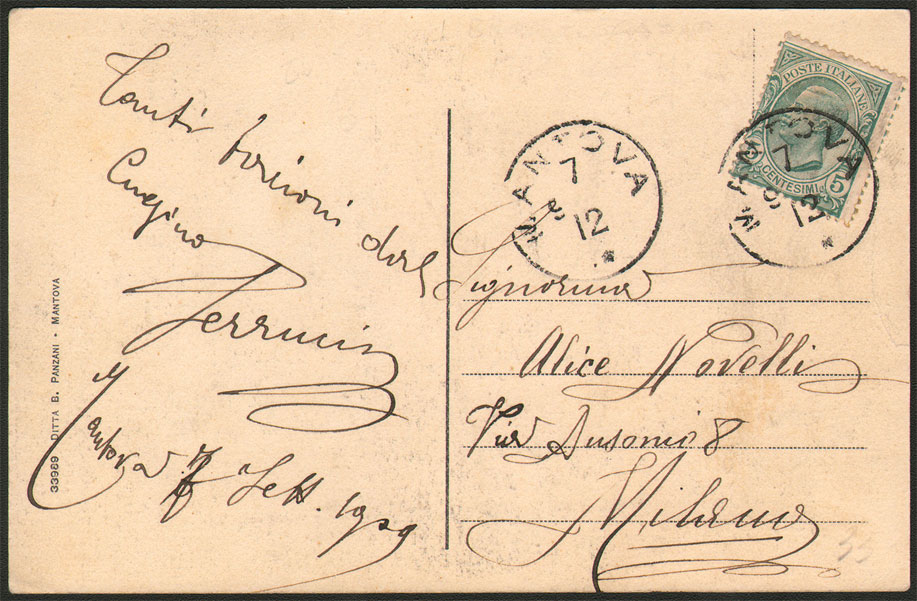 Tanti bacioni dal
Cugino
Ferruccio
Mantova 7 Sett. 1909
33969 DITTA B. PANZANI - MANTOVA
MANTOVA
7
9
12
POSTE ITALIANE
CENTESIMI 5
MANTOVA
7
9
12
Signorina
Alice Novelli
Via Ausonio 8
Milano